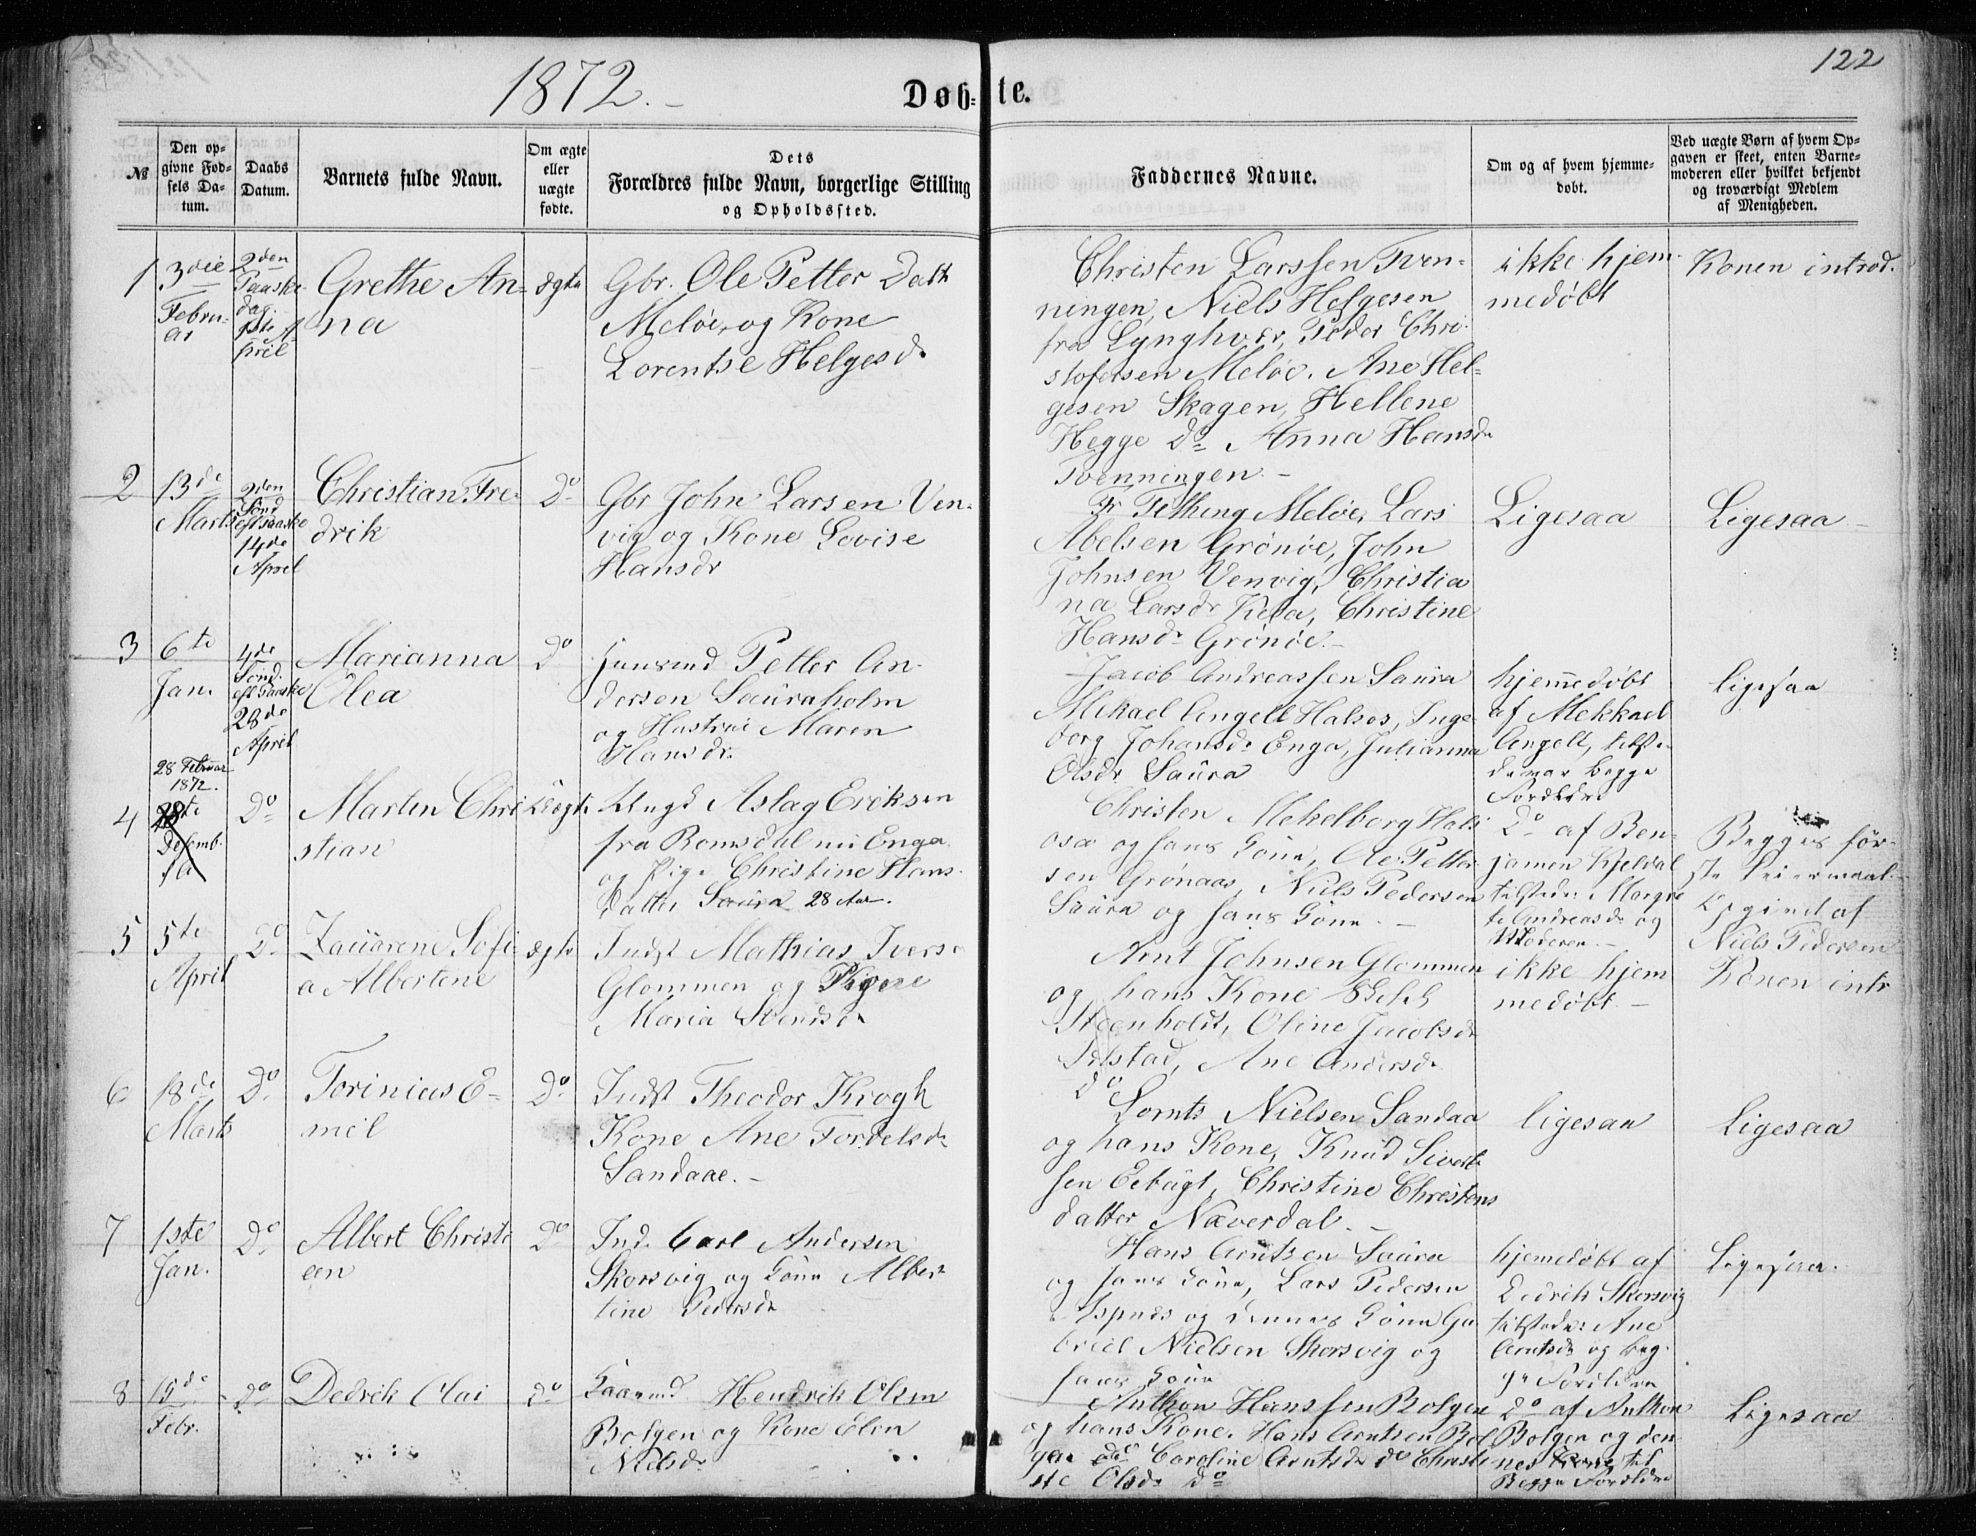 122
1872.
Døb-te.
№
Den op-
givne Fød-
sels Da-
tum.
Daabs
Datum.
Barnets fulde Navn.
Om ægte
eller
uægte
fødte.
Dets
Forældres fulde Navn, borgerlige Stilling
og Opholdssted.
Faddernes Navne.
Om og af hvem hjemme-
døbt.
Ved uægte Børn af hvem Op-
gaven er skeet, enten Barne-
moderen eller hvilket bekjendt
og troværdigt Medlem
af Menigheden.
1
3die
Febru-
ar
2den
Paaske
dag
1ste A-
pril
Grethe An-
na
ægte
Gbr. Ole Petter Dall
Meløe, og Kone
Lorentse Helgesdr
Christen Larssen Tven-
ningen, Niels Helgesen
fra Lynghver, Peder Chri-
stofersen Meløe. Ane Hel-
gesen Skagen, Hellene
Hegge do Anna Hansdr
Tvenningen. -
ikke hjem-
medøbt
Konen introd.
2
13de
Marts
2den
Sönd
eft Paaske
14de
April
Christian Fre-
drik
Do
Gbr John Larsen Ven-
vig og Kone Lovise
Hansdr
Fr Felling Meløe, Lars
Abelsen Grönöe, John
Johnsen Venvig, Christia
na Larsdr Kila, Christine
Hansdr Grönöe. -
Ligesaa
Ligesaa -
3
6te
Jan.
4de
Sönd.
eft Paaske
28de
April
Marianna
Olea
Do
Huusmd Petter An-
dersen Sauraholm
og Hustrue Maren
Hansdr.
Jacob Andreassen Saura
Mekael Angell Halsos, Inge-
borg Johansdr Enga, Julianna
Olsdr Saura
hjemmedøbt
af Mekkael
Angell, tilste-
de var begge
Forældre
ligesaa
4
28 Februar
1872.
Desemb.
Do
Marten Chri
stian
Uægte
Ungk Aslag Eriksen
fra Romsdal nu Enga
og Pige Christine Hans-
datter Saura 28 Aar.
Christen Mekelborg Hals
osa og hans Kone, Ole Petter
sen Gronaas, Niels Pedersen
Saura og hans Kone. -
Do af Ben-
jamen Kjeldal
tilstede Margre
te Andreasdr og
Moderen. -
Begges för-
ste Leiermaal.
Opgivet af
Niels Pedersen
5
5te
April
Do
Laurene Sofi
a Albertene
ægte
Indst Mathias Iverse
Glommen og Kone
Maria Svendsdr
Arnt Johnsen Glommen
og hans Kone
Steenholdt, Oline Jacobsdr
Selstad, Ane Andersdr
do
ikke hjem
medøbt. -
Konen intr
6
18de
Marts
Do
Torinius E-
mil
Do
Indst Theodor Krogh
Kone Ane Tordelsdr
Sandaae. -
Lornts Nielsen Sandaa
og hans Kone, Knud Sivert-
sen Eebugt, Christine Christens
datter Næverdal. -
ligesaa
Ligesaa
7
1ste
Jan.
Do
Albert Christi
an
Do
Ind. Carl Andersen
Skorsvig og Kone Alber
tine Pedersdr
Hans Arntsen Saura
og hans Kone, Lars Pedersen
Espnes og dennes Kone Ga
briel Nielsen Skorsvig og
hans Kone
hjemedøbt af
Dedrik Skorsvig
tilstede: Ane
Arntsdr og beg-
ge Forældre
Ligesaa.
8
15de
Febr.
Do
Dedrik Olai
Do
Huusmd Hendrik Olsen
Bolgen og Kone Elen
Nielsdr
Anthon Hanssen Bolgen
og hans Kone. Hans Arntsen Bol
gen do Caroline Arntsdr do Christi
ne Olsdr Do
Do af Anthon
Bolgen og den-
nes Kone til
Begge Forældre
Ligesaa